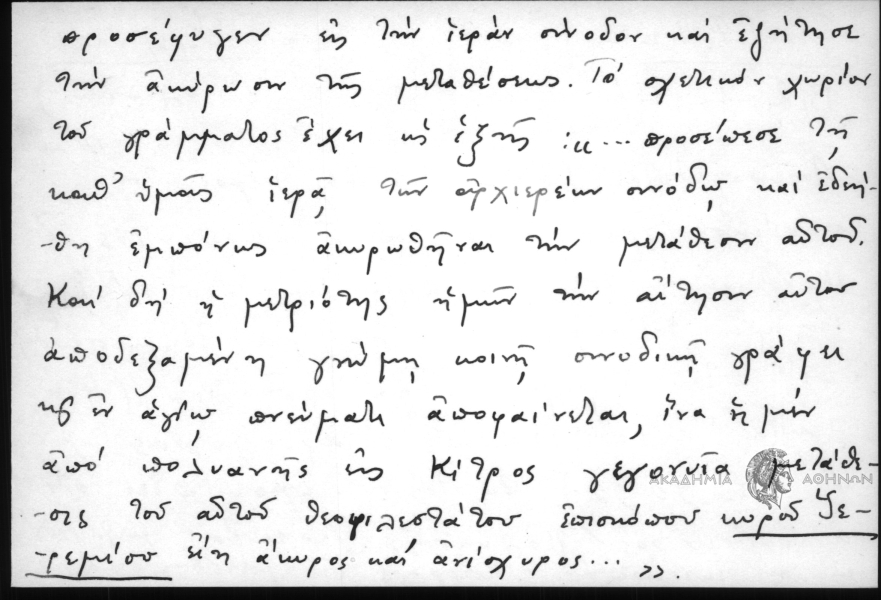 προσέφυγεν εἰς τὴν ἱερὰν σύνοδον καὶ ἐζήτησε
τὴν ἀκύρωσιν τῆς μεταθέσεως. Τὸ σχετικὸν χωρίον
τοῦ γράμματος ἔχει ὡς ἑξῆς :«... προσέπεσε τῇ
καθ' ἡμᾶς ἱερᾷ τῶν ἀρχιερέων συνόδῳ καὶ ἐδεή-
-θη ἐμπόνως ἀκυρωθῆναι τὴν μετάθεσιν αὐτοῦ.
Καὶ δὴ ἡ μετριότης ἡμῶν τὴν αἴτησιν αὐτοῦ
ἀποδεξαμένη γνώμῃ κοινῇ συνοδικῇ γράφει
κ̀ ἐν ἁγίῳ πνεύματι ἀποφαίνεται, ἵνα ἡ μὲν
ἀπὸ Πολυανῆς εἰς Κίτρος γεγονυῖα μετάθε-
-σις τοῦ αὐτοῦ θεοφιλεστάτου ἐπισκόπου κυροῦ Ἱε-
-ρεμίου εἴη ἄκυρος καὶ ἀνίσχυρος... ».
ΑΚΑΔΗΜΙΑ ΑΘΗΝΩΝ